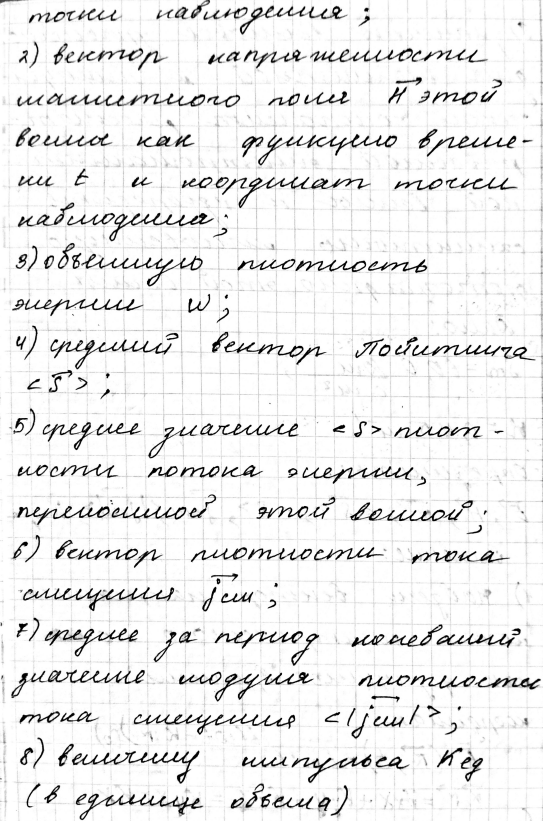 точки наблюдения;
2) вектор напряженности
магнитного поля H⃗ этой
волны как функцию време-
ни t и координат точки
наблюдения;
3) объемную плотность
энергии w;
4) средний вектор Пойнтинга
<S⃗>;
5) среднее значение <S> плот-
ности потока энергии,
переносимой этой волной;
6) вектор плотности тока
смещения j⃗см;
7) среднее за период колебаний
значение модуля плотности
тока смещения <|j⃗см|>;
8) величину импульса Kед
(в единице объема)